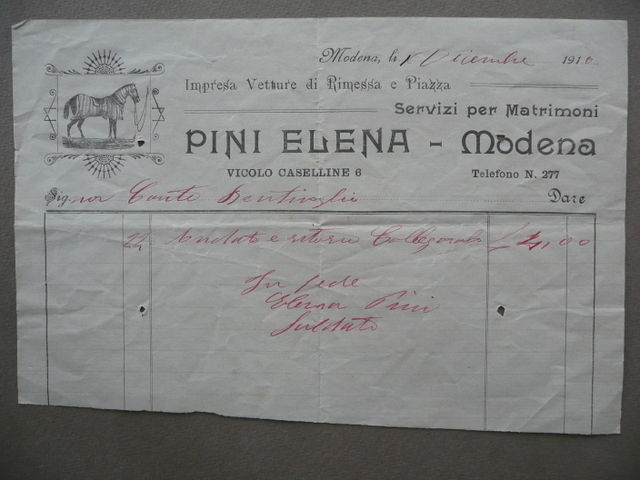 Modena, li 1 Dicembre 1910
Impresa Vetture di Rimessa e Piazza
Servizi per Matrimoni
PINI ELENA - Modena
VICOLO CASELLINE 6 Telefono N. 277
Signor Conte Bentivoglio Dare
24 Andata e ritorno £ 4,00
In fede
Elena Pini
Saldato